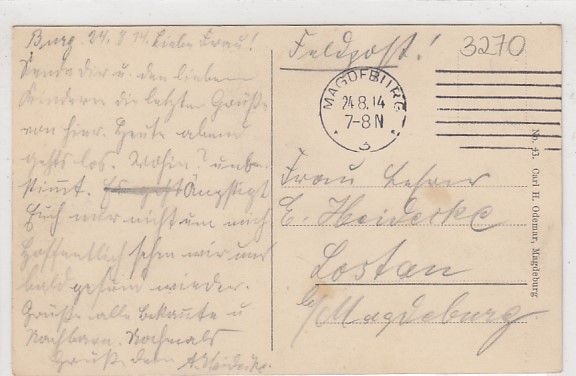 Burg. 24.8.14. Liebe Frau!
Sende Dir u. den lieben
Kindern die letzten Grüße
von hier. Heute abend
gehts los. Wohin? unbe-
stimmt. Es geht Ängstigt
Euch nur nicht um mich
Hoffentlich sehen wir uns
bald gesund wieder.
Grüße alle Bekannte u
Nachbarn. Nochmals
Gruß Dein A. Heidecke.
Feldpost!
3270
MAGDEBURG
24.8.14
7-8 N
3
Frau Lehrer
E. Heidecke
Lostau
b/Magdeburg
No. 43. Carl H. Odemar, Magdeburg